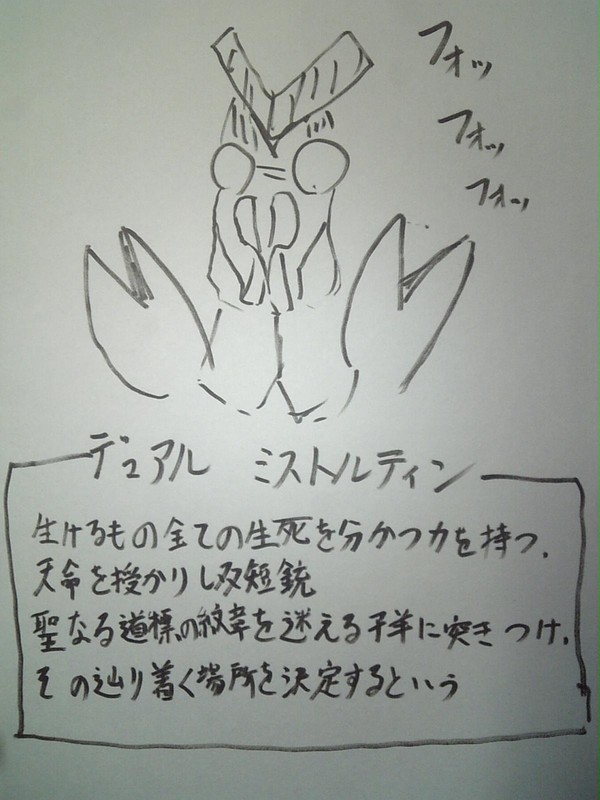 フォッ
フォッ
フォッ
デュアル ミストルティン
生けるもの全ての生死を分かつ力を持つ.
天命を授かりし双短銃
聖なる道標の紋章を迷える子羊に突きつけ.
その辿り着く場所を決定するという